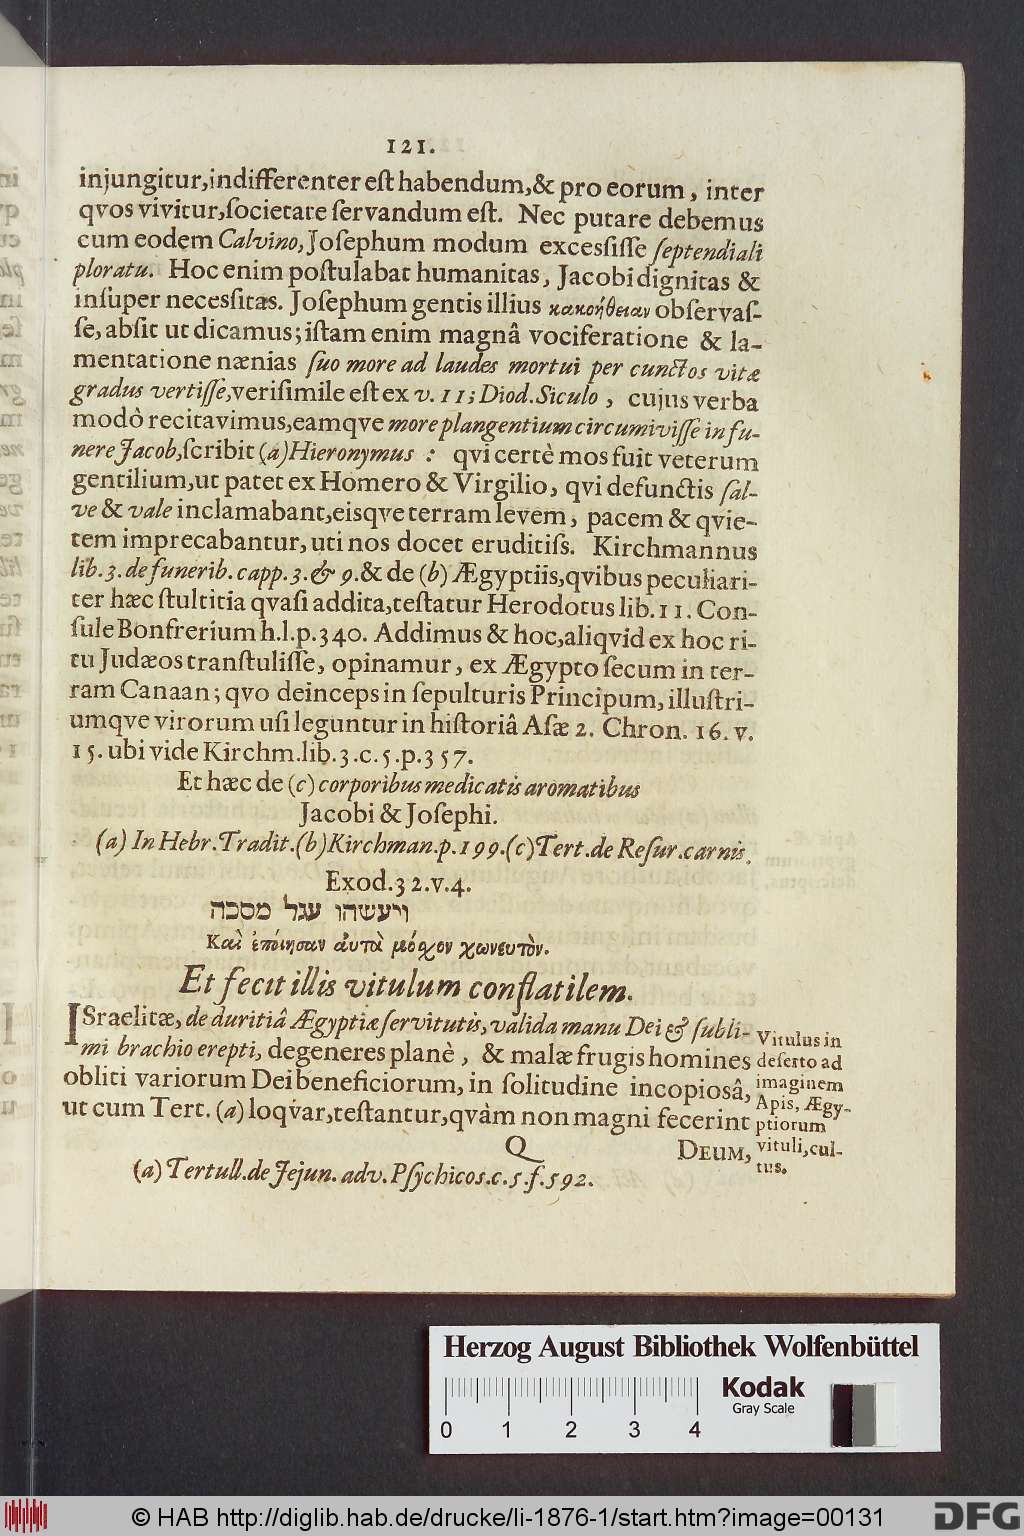 121.
injungitur, indifferenter est habendum, & pro eorum, inter
qvos vivitur, societate servandum est. Nec putare debemus
cum eodem Calvino, Josephum modum excessisse septendiali
ploratu. Hoc enim postulabat humanitas, Jacobi dignitas &
insuper necessitas. Josephum gentis illius κακοήθειαν observas-
se, absit ut dicamus; istam enim magnâ vociferatione & la-
mentatione nænias suo more ad laudes mortui per cunctos vitæ
gradus vertisse, verisimile est ex v. 11; Diod. Siculo, cujus verba
modò recitavimus, eamqve more plangentium circumivisse in fu-
nere Jacob, scribit (a) Hieronymus : qvi certè mos fuit veterum
gentilium, ut patet ex Homero & Virgilio, qvi defunctis sal-
ve & vale inclamabant, eisqve terram levem, pacem & qvie-
tem imprecabantur, uti nos docet eruditiss. Kirchmannus
lib. 3. de funerib. capp. 3. & 9. & de (b) Ægyptiis, qvibus peculiari-
ter hæc stultitia qvasi addita, testatur Herodotus lib. 11. Con-
sule Bonfrerium h. l. p. 340. Addimus & hoc, aliqvid ex hoc ri-
tu Judæos transtulisse, opinamur, ex Ægypto secum in ter-
ram Canaan; qvo deinceps in sepulturis Principum, illustri-
umqve virorum usi leguntur in historiâ Asæ 2. Chron. 16. v.
15. ubi vide Kirchm. lib. 3. c. 5. p. 357.
Et hæc de (c) corporibus medicatis aromatibus
Jacobi & Josephi.
(a) In Hebr. Tradit. (b) Kirchman. p. 199. (c) Tert. de Resur. carnis.
Exod. 32. v. 4.
ויעשהו עגל מסכה
Καὶ ἐποίησαν ἀυτὰ μόσχον χωνευτὸν.
Et fecit illis vitulum conflatilem.
ISraelitæ, de duritiâ Ægyptiæ servitutis, valida manu Dei & subli-
mi brachio erepti, degeneres planè, & malæ frugis homines
obliti variorum Dei beneficiorum, in solitudine incopiosâ,
ut cum Tert. (a) loqvar, testantur, qvàm non magni fecerint
Vitulus in
deserto ad
imaginem
Apis, Ægy-
ptiorum
vituli, cul-
tus.
Q
DEUM,
(a) Tertull. de Jejun. adv. Psychicos. c. 5. f. 592.
Herzog August Bibliothek Wolfenbüttel
Kodak
Gray Scale
0 1 2 3 4
© HAB http://diglib.hab.de/drucke/li-1876-1/start.htm?image=00131
DFG